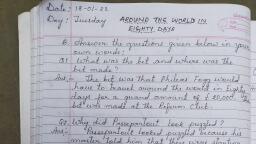 Date: 18-01-22
Day: Tuesday AROUND THE WORLD IN
EIGHTY DAYS
Q. Answer the questions given below in your
own words:
Q1 What was the bet and where was the
bet made?
Ans:- The bet was that Phileas Fogg would
have to travel around the world in eighty
days for a grand amount of £ 20,000. The
bet was made at the Reform Club.
Q2. Why did Passepartout look puzzled?
Ans- Passepartout looked puzzled because his
master told him that they were starting